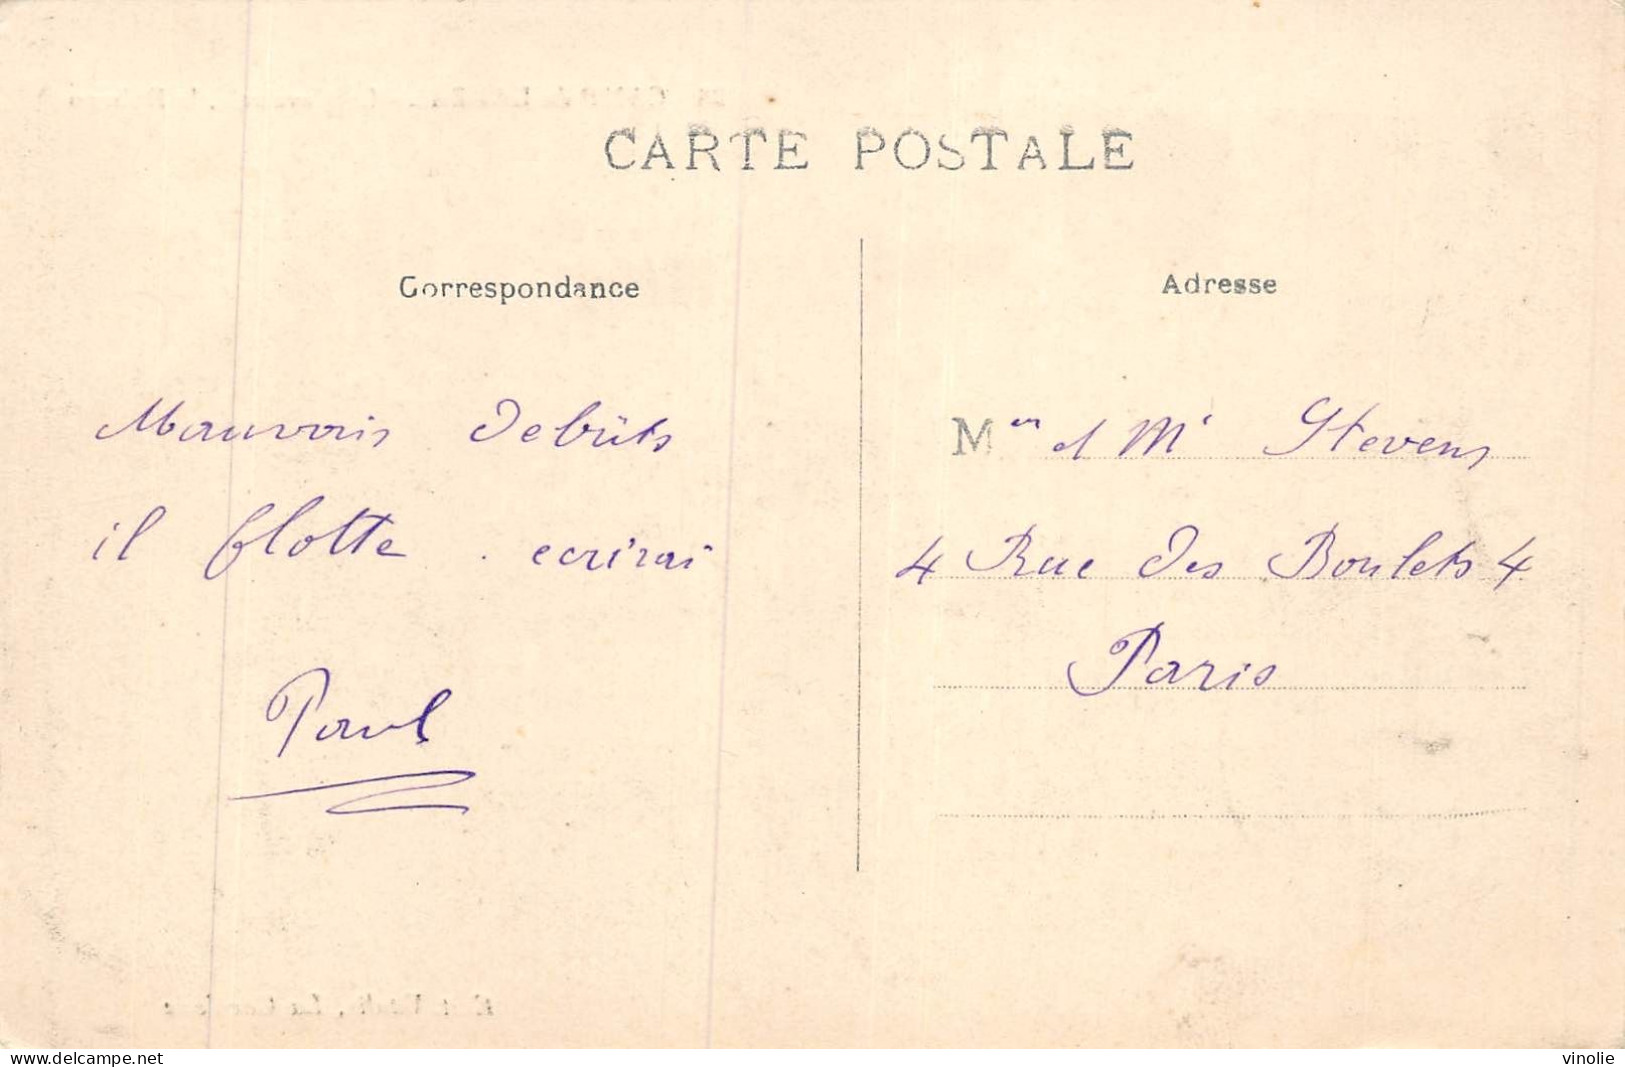 CARTE POSTALE
Correspondance
Adresse
Mauvais debûts
il flotte . ecrirai
Paul
Mᵐ et Mʳ Stevens
4 Rue des Boulets 4
Paris
www.delcampe.net
vinolie